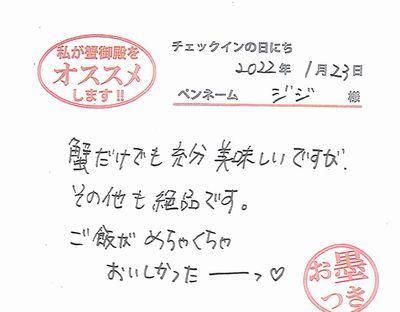 私が蟹御殿を
オススメ
します!!
チェックインの日にち
2022年 1月23日
ペンネーム ジジ 様
蟹だけでも充分美味しいですが、
その他も絶品です。
ご飯が めちゃくちゃ
おいしかったーーっ♡
お墨
つき